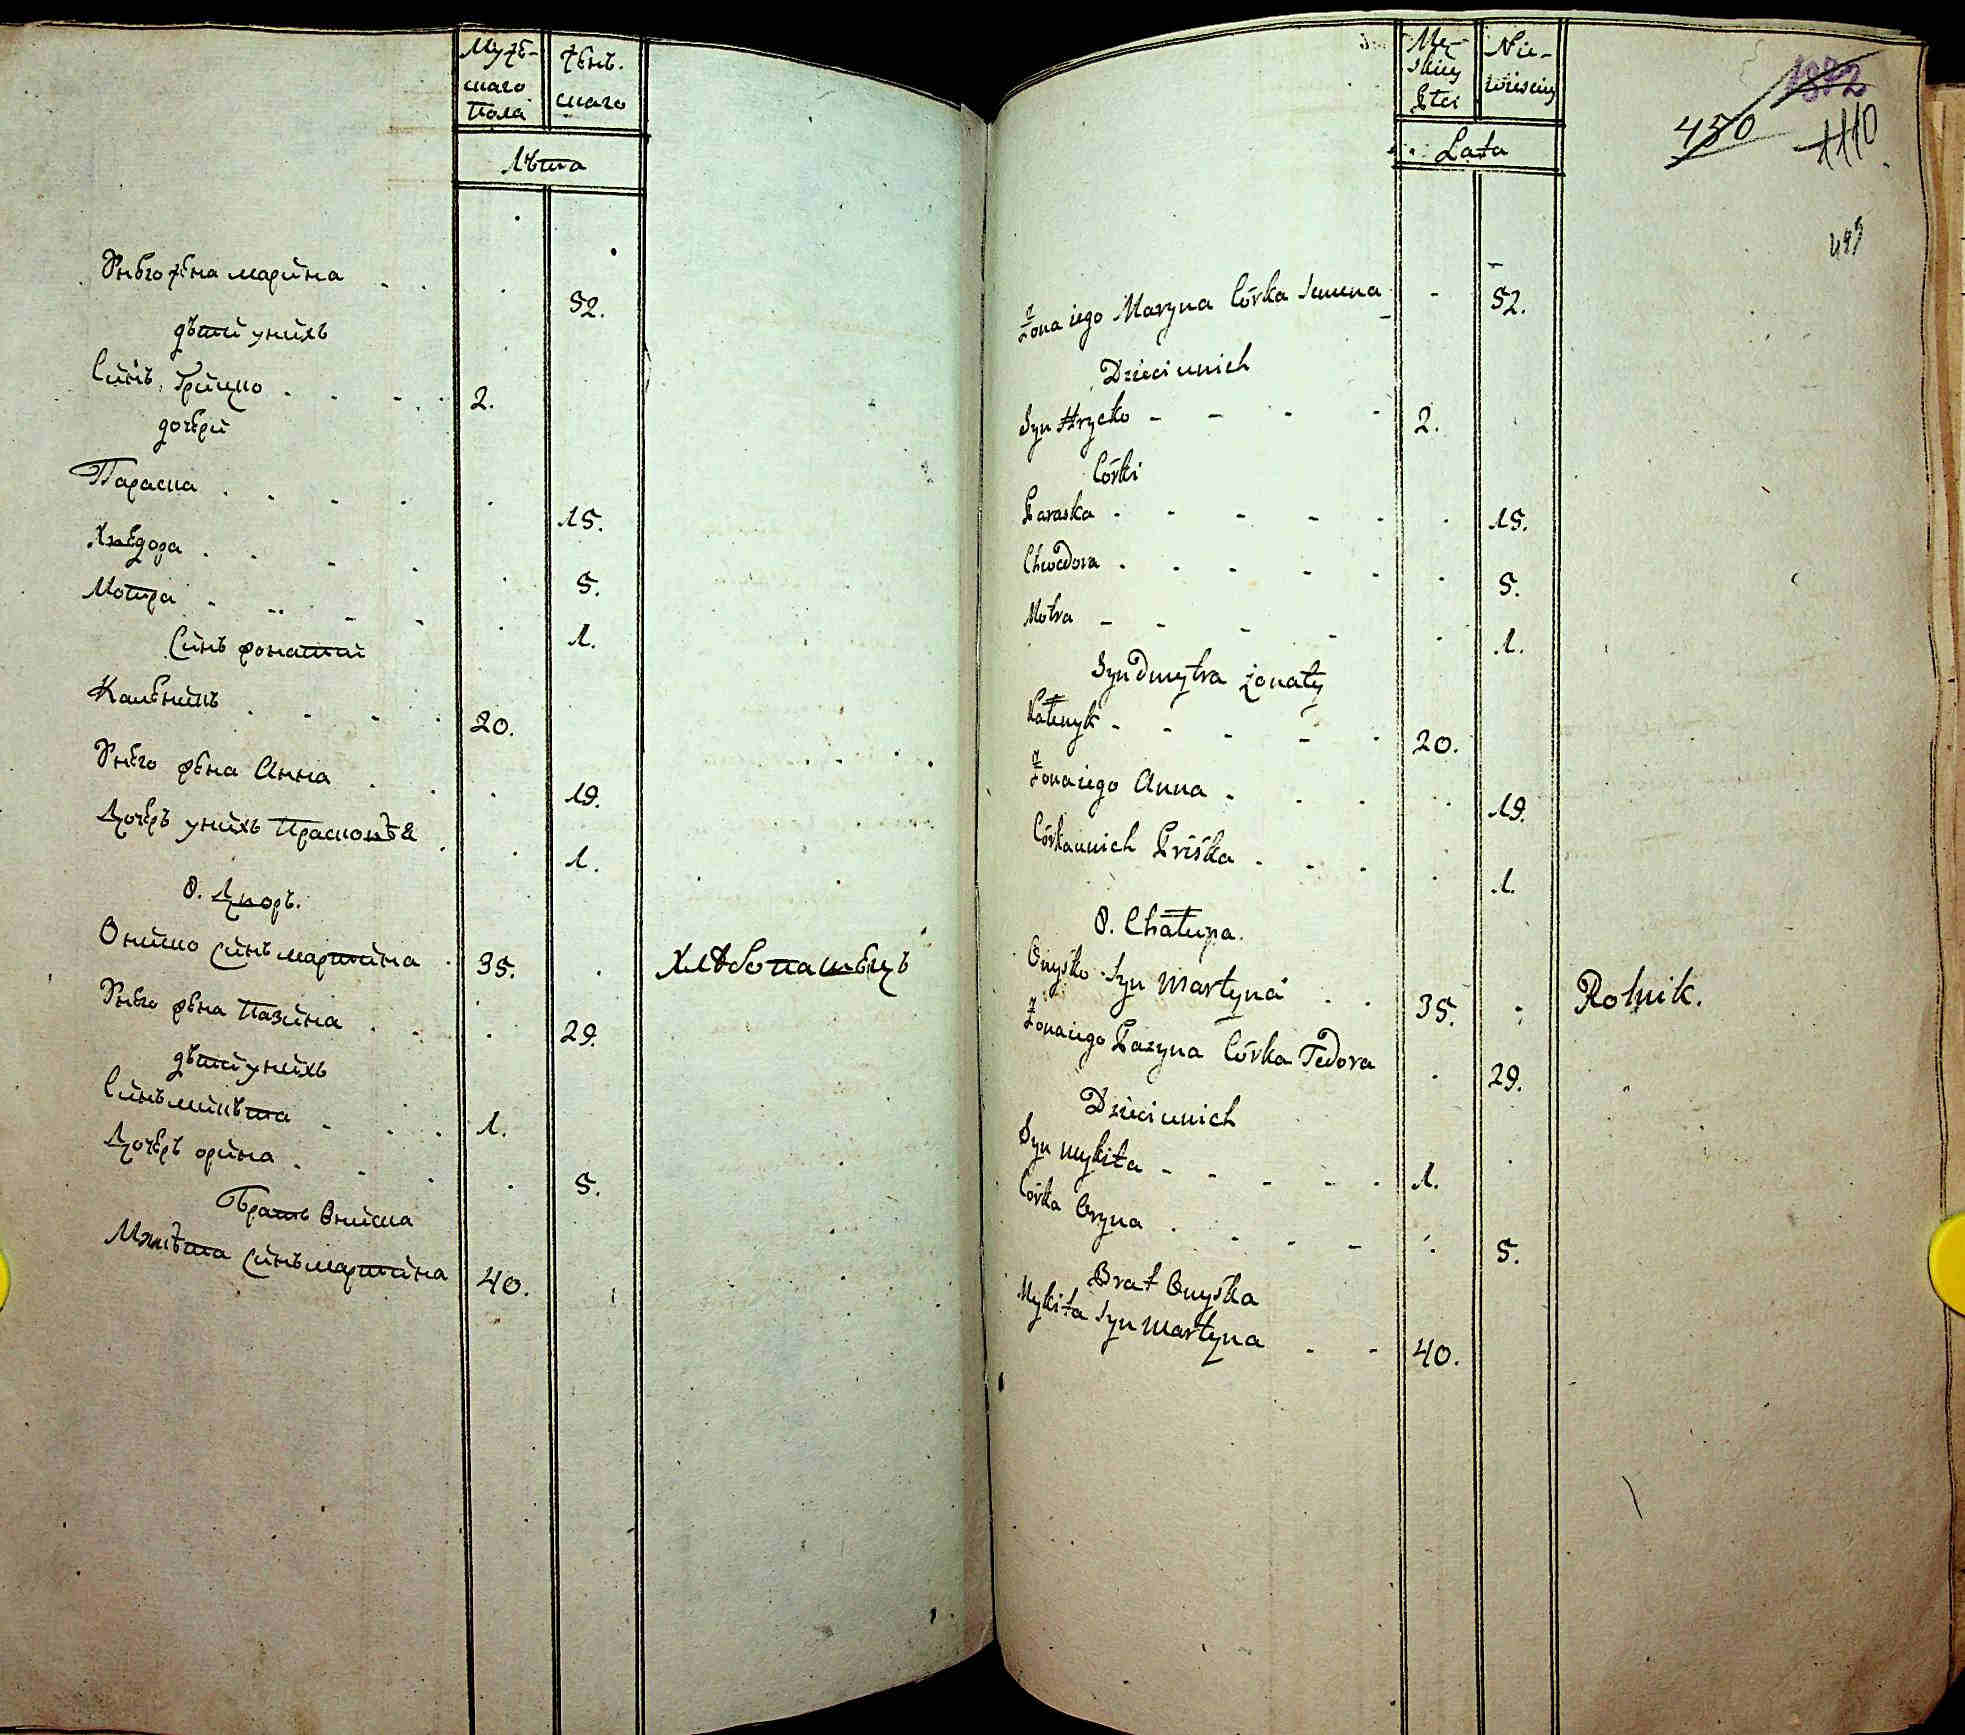 Муже-
скаго
Пола
жен.
скаго
Лѣта
У него жена марина . . . 52.
дѣти у нихъ
Синъ Грицко . . . . 2.
дочери
Параска . . . . . 15.
Хведора . . . . . 5.
Мотра . . . . . 1.
Синъ жонатий
Каленикъ . . . . 20.
У него жена Анна . . . 19.
Дочеръ у нихъ Прасковѣя . . 1.
8. Дворъ.
Онишко Синъ мартина . 35. . Хлѣбопашецъ
У него жена Пазина . . . 29.
дѣти у нихъ
Синъ микѣта . . . 1.
Дочеръ орина . . . . 5.
Братъ Онишка
Микѣта Синъ мартина 40.
Mę-
skiey
Płci
Nie-
wiesciey
Lata
1872
450
1110
Żona iego Maryna Córka Semena - 52.
Dzieci u nich
Syn Hrycko - - - - 2.
Córki
Paraska . - - - - . 15.
Chwedora . - - - - . 5.
Motra - - - - . 1.
Syn Dmytra żonaty
Kałenyk - - - - - 20.
Żona iego Anna - . . . 19.
Córka u nich Priśka - - - . 1.
8. Chałupa.
Onyśko Syn Martyna . . 35. . Rolnik.
Żona iego Pazyna Córka Fedora . 29.
Dzieci u nich
Syn Mykita - - - - - 1. .
Córka Oryna . . - - . 5.
Brat Onyśka
Mykita Syn Martyna - - 40.